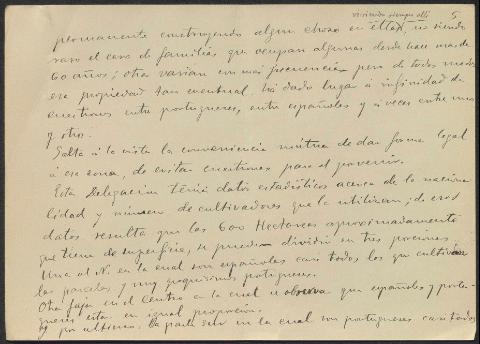 viviendo siempre allí 5
permanente construyendo alguna choza en ellas, no siendo
raro el caso de familias que ocupan algunas desde hace mas de
60 años; otras varian con mas frecuencia pero de todos modos
esa propiedad tan eventual, ha dado lugar a infinidad de
cuestiones entre portugueses, entre españoles y a veces entre unos
y otros.
Salta á la vista la conveniencia mutua de dar forma legal
á esa zona, de evitar cuestiones para el porvenir.
Esta Delegacion tenia datos estadísticos acerca de la naciona
lidad y número de cultivadores que la utilizan; de esos
datos resulta que las 600 Hectareas aproximadamente
que tiene de superficie, se pueden dividir en tres porciones
Una al N. en la cual son españoles casi todos los que cultivan
las parcelas y muy poquisimos portugueses.
Otra faja en el Centro en la cual se observa que españoles y portu-
gueses esta en igual proporcion.
Y por ultimo la parte Sur en la cual son portugueses casi todos